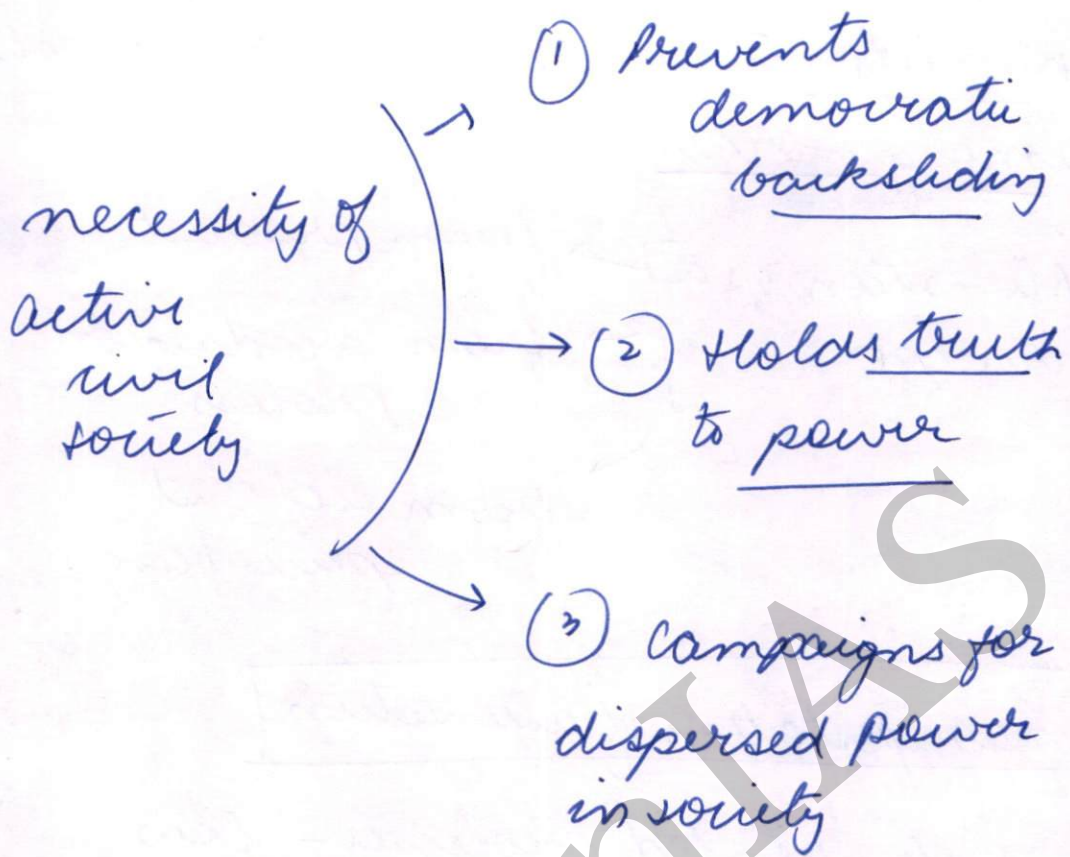 necessity of
active
civil
society
① Prevents
democratic
backsliding
② Holds truth
to power
③ Campaigns for
dispersed power
in society
nIAS